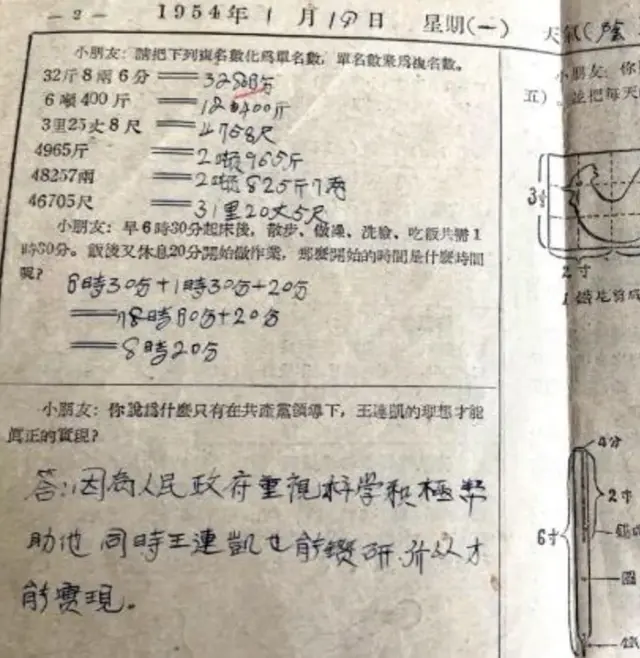 — 2 — 1954年 1 月 1 日 星期(一) 天氣(陰
小朋友：請把下列複名數化為單名數，單名數聚爲複名數。
32斤8兩6分 ══ 分
6噸400斤 ══ 12400斤
3里25丈8尺 ══ 4758尺
4965斤 ══ 2噸965斤
48257兩 ══ 2噸825斤7兩
46705尺 ══ 31里20丈5尺
小朋友：早6時30分起床後，散步、做操、洗臉、吃飯共需1
時30分。飯後又休息20分開始做作業，那麼開始的時間是什麼時間
呢？
6時30分+1時30分+20分
══ 8時 0分+20分
══ 8時20分
小朋友：你說爲什麼只有在共產黨領導下，王連凱的理想才能
眞正的實現？
答：因為人民政府重視科学积極帮
助他 同時王連凱也能鑽研 所以才
能實現。
小朋友：你
五）。並把每天
3寸
2寸
1
4分
2寸
6寸